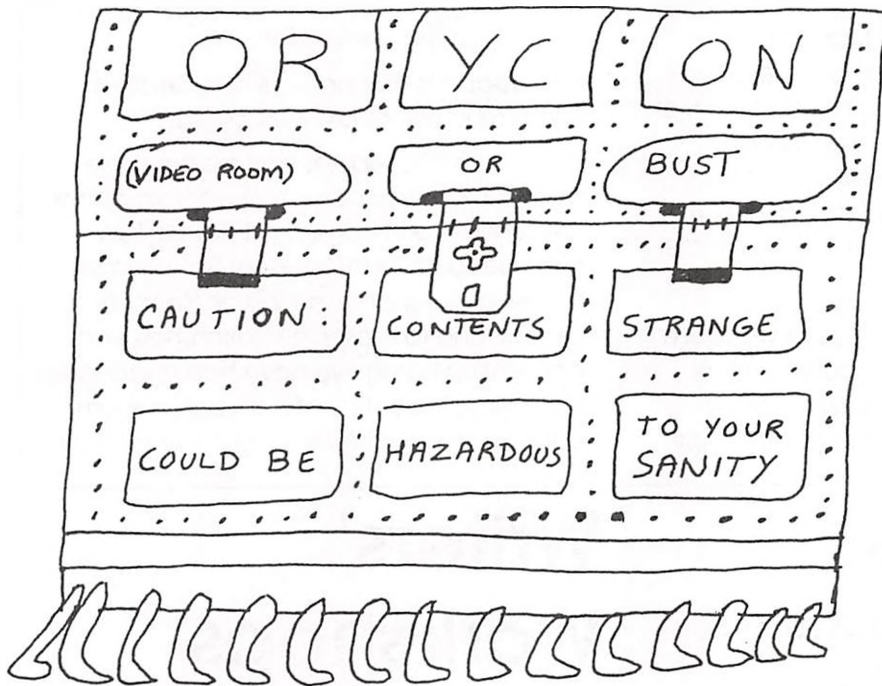 OR YC ON
(VIDEO ROOM) OR BUST
CAUTION: CONTENTS STRANGE
COULD BE HAZARDOUS TO YOUR
SANITY